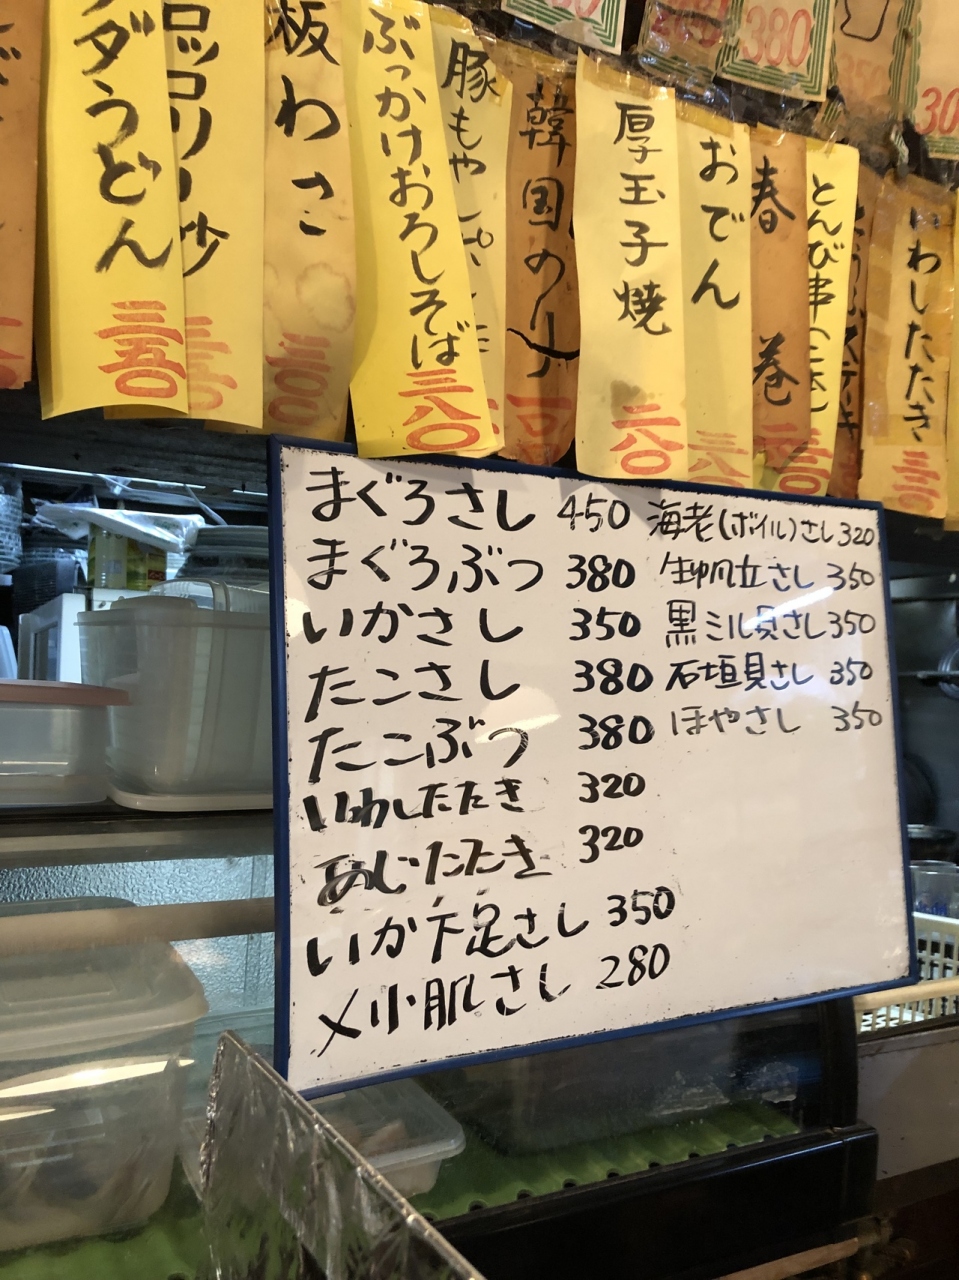 ダうどん
三五〇
ロッコリー炒
板わさ
三〇〇
ぶっかけおろしそば
三八〇
豚もやし
韓国のり
厚玉子焼
二八〇
おでん
春巻
とんび串(二本)
ステーキ
いわしたたき
380
30
まぐろさし 450
まぐろぶつ 380
いかさし 350
たこさし 380
たこぶつ 380
いわしたたき 320
あじたたき 320
いか下足さし 350
〆小肌さし 280
海老(ボイル)さし 320
生帆立さし 350
黒ミル貝さし 350
石垣貝さし 350
ほやさし 350